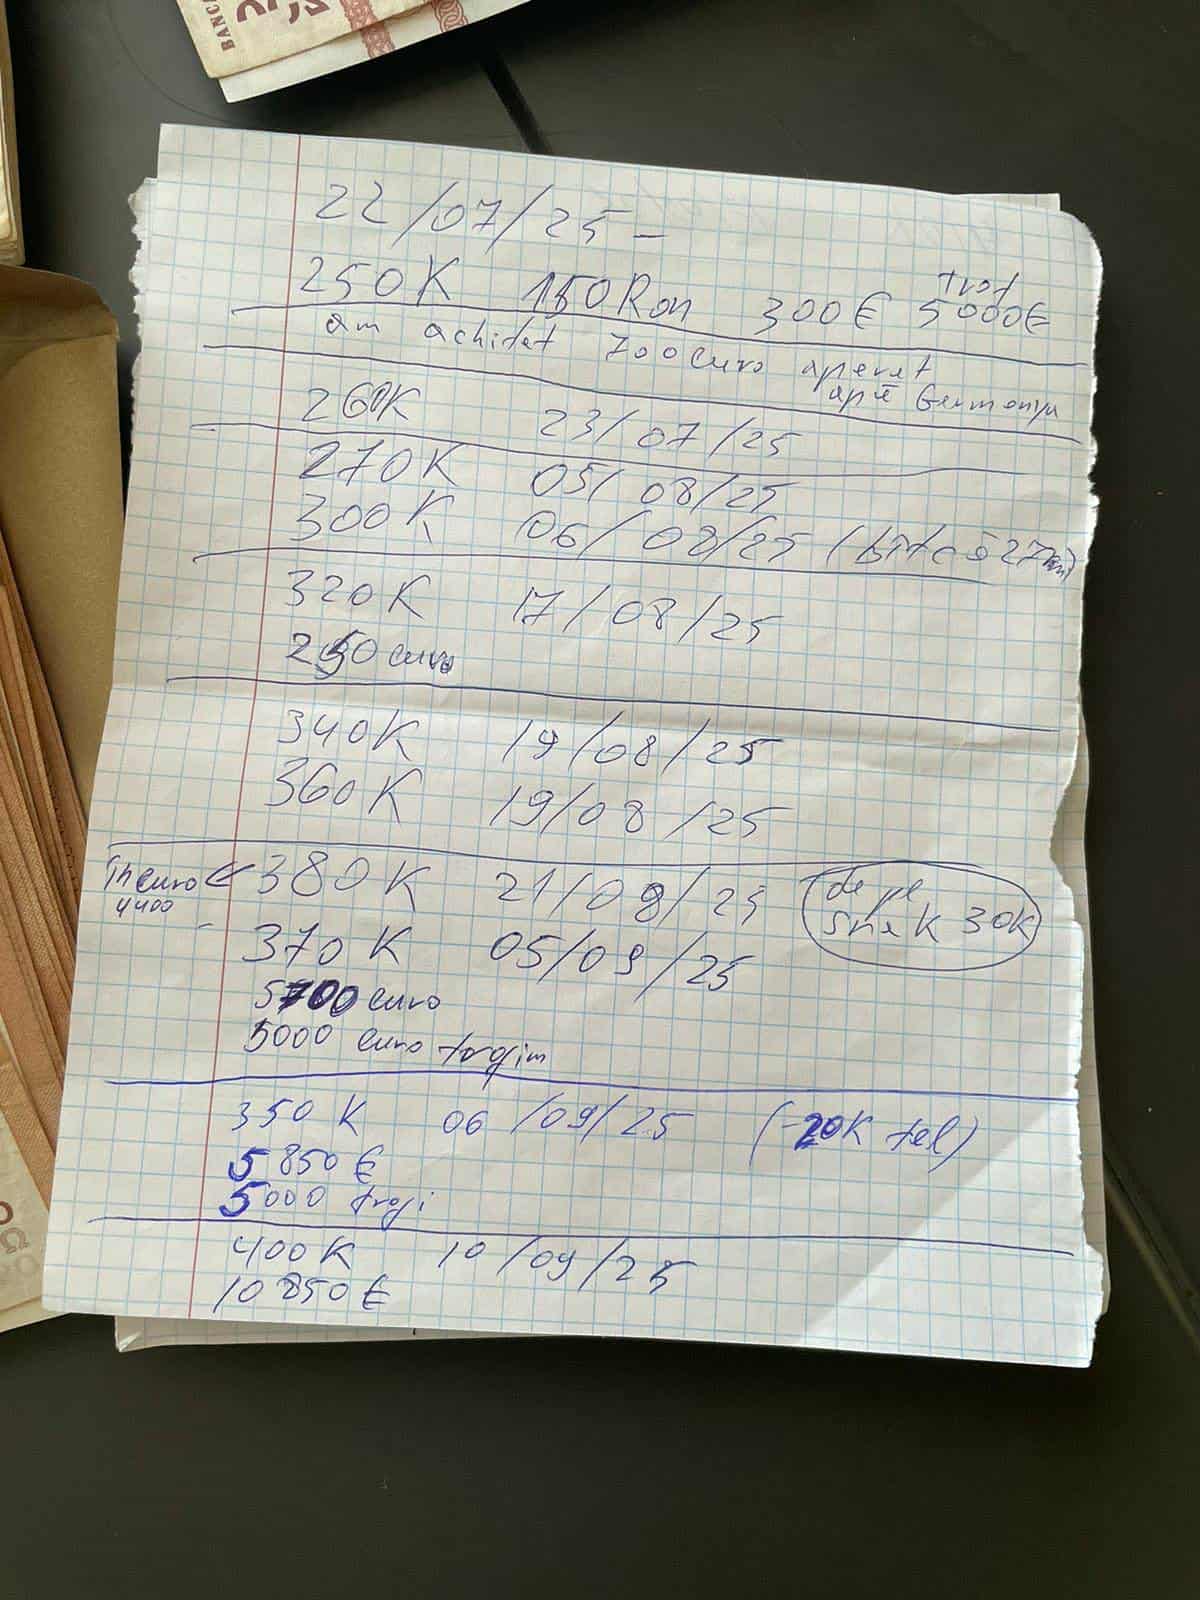 BANCA
22/07/25 -
250K 150Ron 300€ 5000€
am achitat 700euro aparat
apă Germaniya
260K 23/07/25
270K 05/08/25
300K 06/08/25
320K 17/08/25
250 euro
340K 19/08/25
360K 19/08/25
in euro 380K 21/08/25 de pe
4400 snek 30K
370K 05/09/25
5700 euro
5000 euro torgim
350K 06/09/25 (-20K tel)
5850€
5000 trogi
400K 10/09/25
10850€